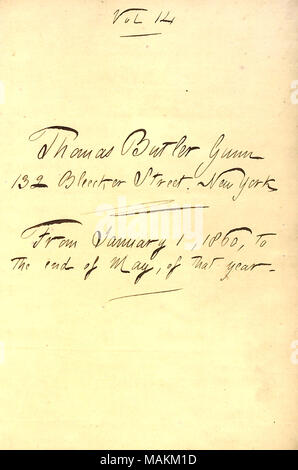 Vol 14
Thomas Butler Gunn
132 Bleecker Street. New York
From January 1, 1860, to
the end of May, of that year.
alamy
Image ID: MAKM1D
www.alamy.com